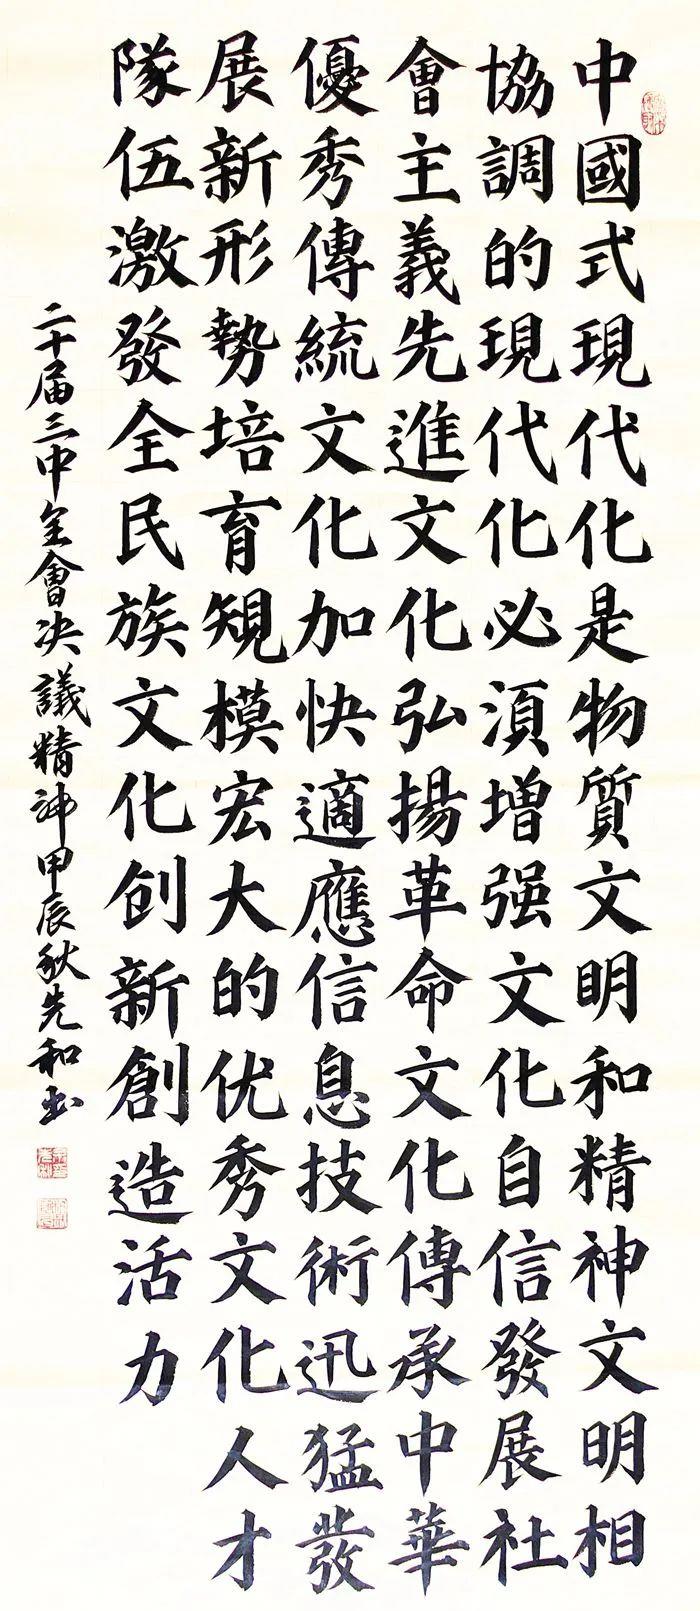 中國式現代化是物質文明和精神文明相
協調的現代化必須增强文化自信發展社
會主義先進文化弘揚革命文化傳承中華
優秀傳統文化加快適應信息技術迅猛發
展新形勢培育規模宏大的优秀文化人才
隊伍激發全民族文化创新創造活力
二十届三中全會决議精神甲辰秋先和书